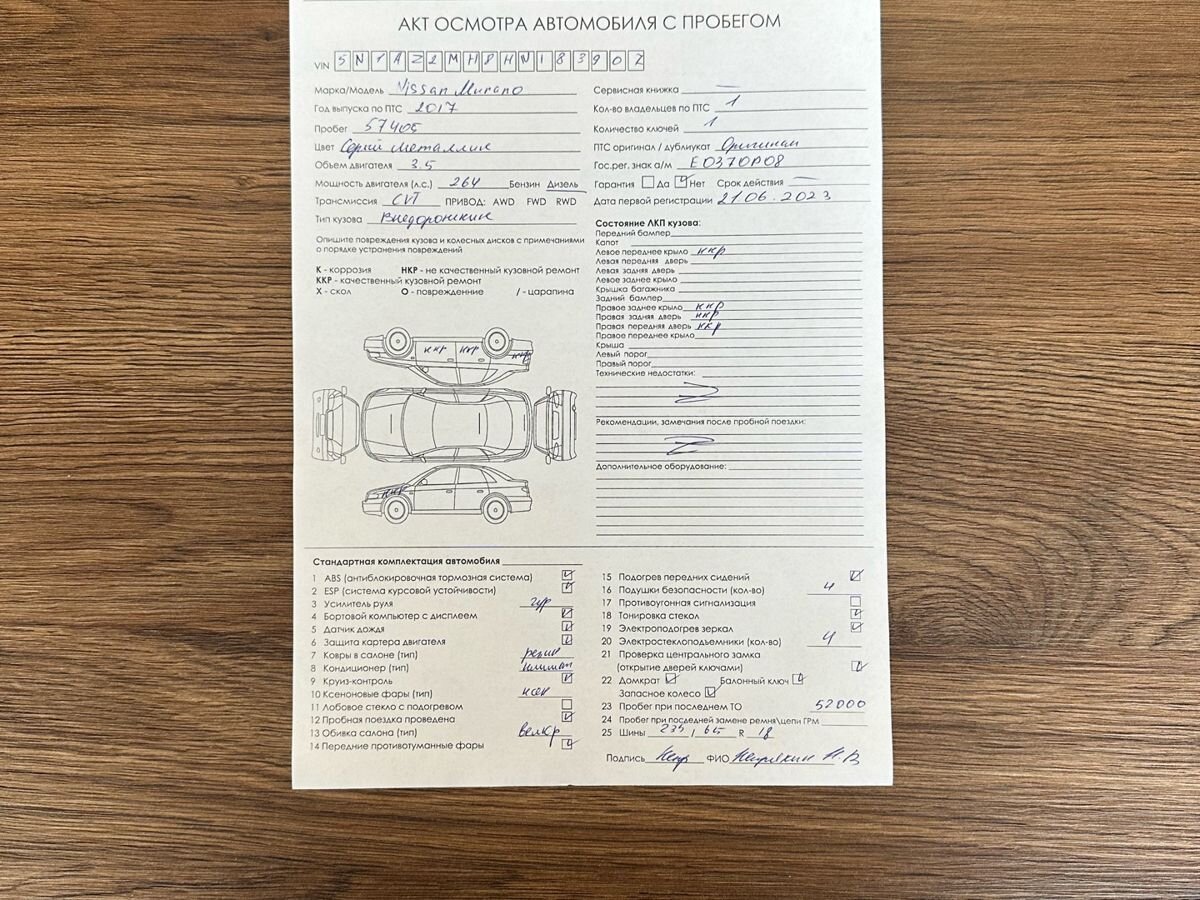 АКТ ОСМОТРА АВТОМОБИЛЯ С ПРОБЕГОМ
VIN 5N1AZ2MH8HN183902
Марка/Модель Nissan Murano
Год выпуска по ПТС 2017
Пробег 57405
Цвет Серый металлик
Объем двигателя 3.5
Мощность двигателя (л.с.) 264 Бензин Дизель
Трансмиссия CVT ПРИВОД: AWD FWD RWD
Тип кузова Внедорожник
Опишите повреждения кузова и колесных дисков с примечаниями
о порядке устронения повреждений
К - коррозия НКР - не качественный кузовной ремонт
ККР - качественный кузовной ремонт
Х - скол О - повреждение / - царапина
ккр ккр ккр
ккр
Сервисная книжка —
Кол-во владельцев по ПТС 1
Количество ключей 1
ПТС оригинал / дубликат Оригинал
Гос.рег. знак а/м Е037ОР08
Гарантия Да Нет Срок действия —
Дата первой регистрации 21.06.2023
Состояние ЛКП кузова:
Передний бампер
Капот
Левое переднее крыло ккр
Левая передняя дверь
Левая задняя дверь
Левое заднее крыло
Крышка багажника
Задний бампер
Правое заднее крыло ккр
Правая задняя дверь ккр
Правая передняя дверь ккр
Правое переднее крыло
Крыша
Левый порог
Правый порог
Технические недостатки:
Рекомендации, замечания после пробной поездки:
Дополнительное оборудование:
Стандартная комплектация автомобиля
1 ABS (антиблокировочная тормозная система)
2 ESP (система курсовой устойчивости)
3 Усилитель руля гур
4 Бортовой компьютер с дисплеем
5 Датчик дождя
6 Защита картера двигателя
7 Ковры в салоне (тип) резин
8 Кондиционер (тип) климат
9 Круиз-контроль
10 Ксеноновые фары (тип) ксен
11 Лобовое стекло с подогревом
12 Пробная поездка проведена
13 Обивка салона (тип) велюр
14 Передние противотуманные фары
15 Подогрев передних сидений
16 Подушки безопасности (кол-во) 4
17 Противоугонная сигнализация
18 Тонировка стекол
19 Электроподогрев зеркал
20 Электростеклоподъемники (кол-во) 4
21 Проверка центрального замка
(открытие дверей ключами)
22 Домкрат Балонный ключ
Запасное колесо
23 Пробег при последнем ТО 52000
24 Пробег при последней замене ремня\цепи ГРМ
25 Шины 235 / 65 R 18
Подпись ФИО